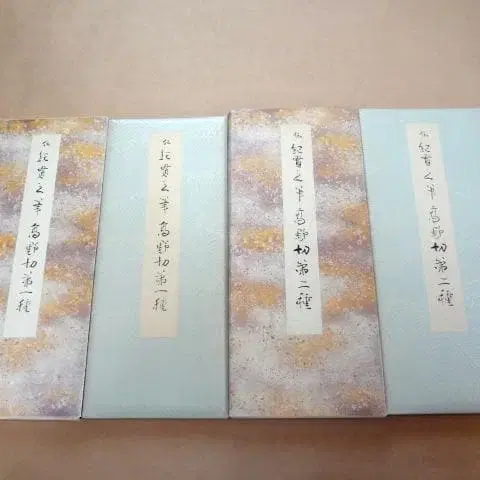 伝紀貫之筆高野切第一種
伝紀貫之筆高野切第一種
伝紀貫之筆高野切第二種
伝紀貫之筆高野切第二種